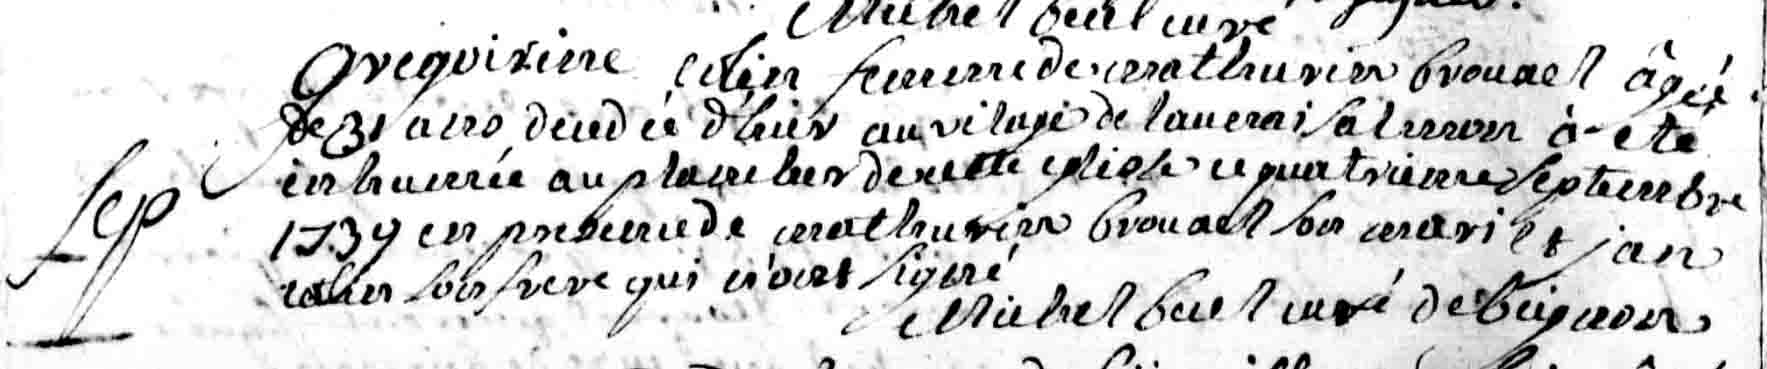 Michel buel curé
Grequirine colin femme de mathurin brouael âgée
de 31 ans decedée d'hier au vilage de la
inhumée au de cette eglise ce quatrieme Septembre
Sep
1739 en presence de mathurin brouael son mari et jan
colin son frere qui n'ont signé
Michel buel curé de beignon